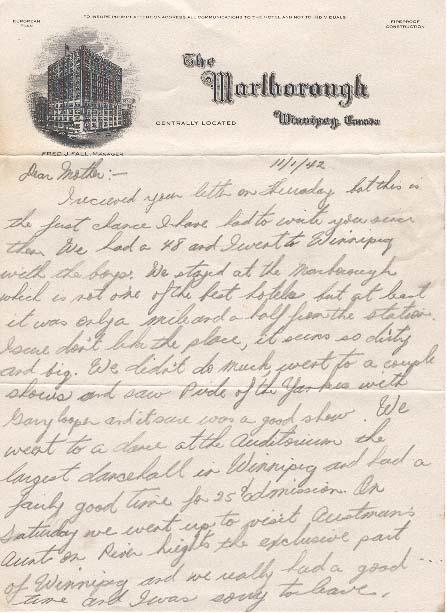 TO INSURE PROMPT ATTENTION ADDRESS ALL COMMUNICATIONS TO THE HOTEL AND NOT TO INDIVIDUALS
EUROPEAN
PLAN
FIREPROOF
CONSTRUCTION
The
Marlborough
CENTRALLY LOCATED
Winnipeg, Canada
FRED J. FALL, MANAGER
11/1/42
Dear Mother:—
I recieved your letter on Thursday but this is
the first chance I have had to write you since
then. We had a 48 and I went to Winnipeg
with the boys. We stayed at the Marborough
which is not one of the best hotels but at best
it was only a mile and a half from the station.
I sure don't like the place, it seems so dirty
and big. We didn't do much, went to a couple
shows and saw Pride of the Yankes with
Gary Cooper and it sure was a good show. We
went to a dance at the Auditorium the
largest dancehall in Winnipeg and had a
fairly good time for 25¢ admission. On
Saturday we went up to visit
Aunt on River heights the exclusive part
of Winnipeg and we really had a good
time and I was sorry to leave.